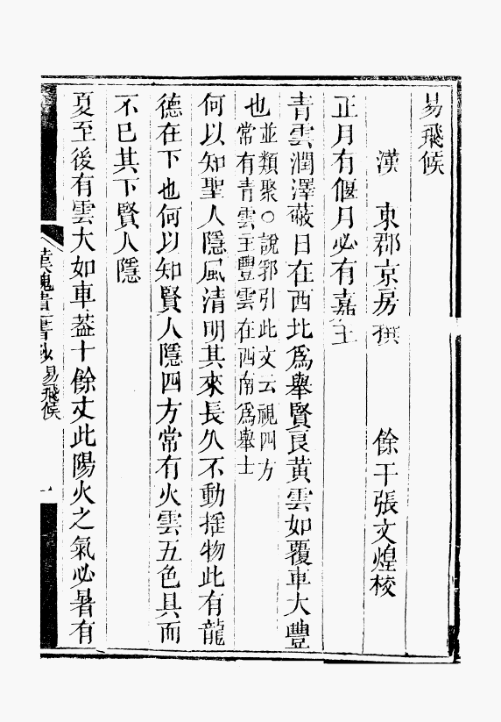 易飛候
漢 東郡京房撰 餘干張文煌校
正月有偃月必有嘉主
青雲潤澤蔽日在西北為舉賢良黃雲如覆車大豐
也並類聚○說郛引此文云視四方
常有青雲主豐雲在西南為舉士
何以知聖人隱風清明其來長久不動搖物此有龍
德在下也何以知賢人隱四方常有火雲五色具而
不已其下賢人隱
夏至後有雲大如車葢十餘丈此陽火之氣必暑有
漢魏遺書鈔 易飛候 一